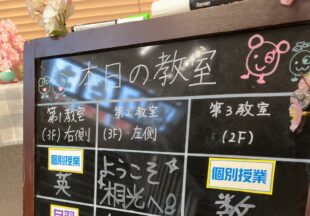 本日の教室
第1教室
(3F) 右側
第2教室
(3F) 左側
第3教室
(2F)
個別授業
英
ようこそ
相光へ
個別授業
数
自習